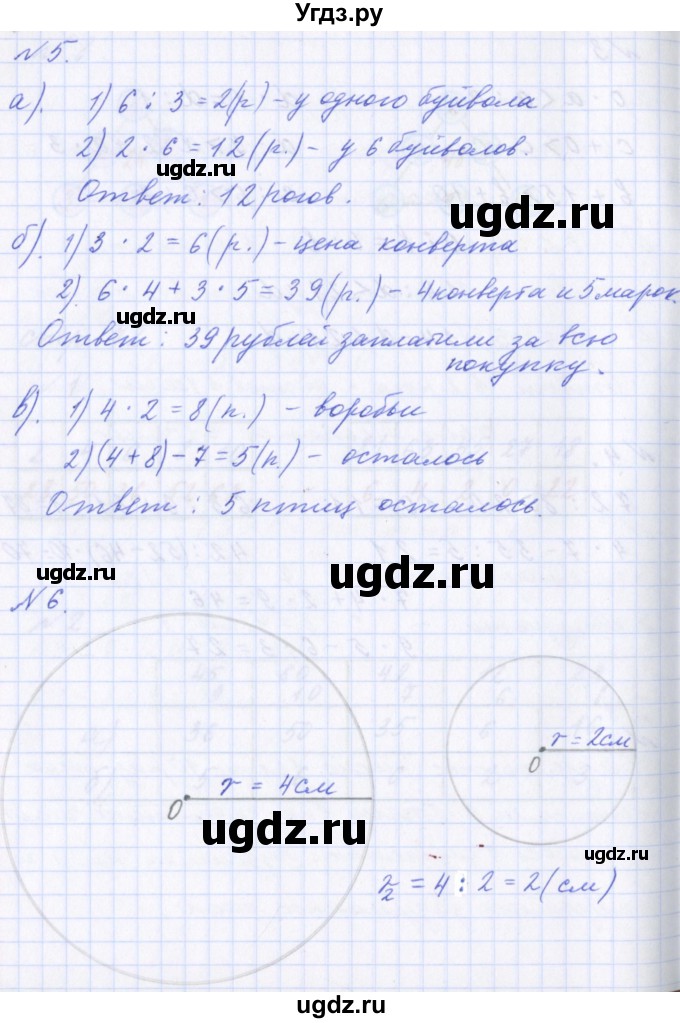 Угдз.ру
№5.
а). 1) 6 : 3 = 2(р) – у одного буйвола
2) 2 · 6 = 12 (р.) – у 6 буйволов.
ugdz.ru
Ответ : 12 рогов.
ugdz.ru
б). 1) 3 · 2 = 6 (р.) – цена конверта
2) 6 · 4 + 3 · 5 = 39 (р.) – 4 конверта и 5 марок.
ugdz.ru
Ответ : 39 рублей заплатили за всю
покупку.
в). 1) 4 · 2 = 8 (п.) – воробьи
2) (4 + 8) – 7 = 5 (п) – осталось
Ответ : 5 птиц осталось.
ugdz.ru
ugdz.ru
№6.
r = 2см
O
r = 4см
O
ugdz.ru
ugdz.ru
r/2 = 4 : 2 = 2 (см)
ugdz.ru